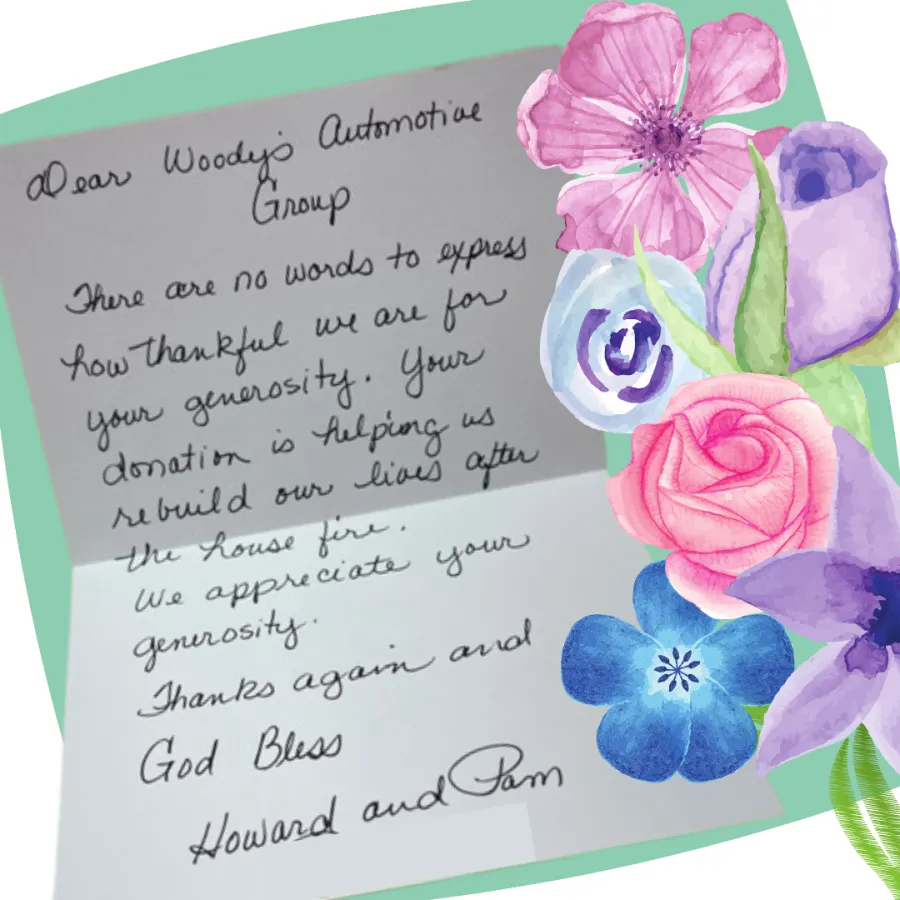 Dear Woody's Automotive
Group
There are no words to express
how thankful we are for
your generosity. Your
donation is helping us
rebuild our lives after
the house fire.
We appreciate your
generosity.
Thanks again and
God Bless
Howard and Pam